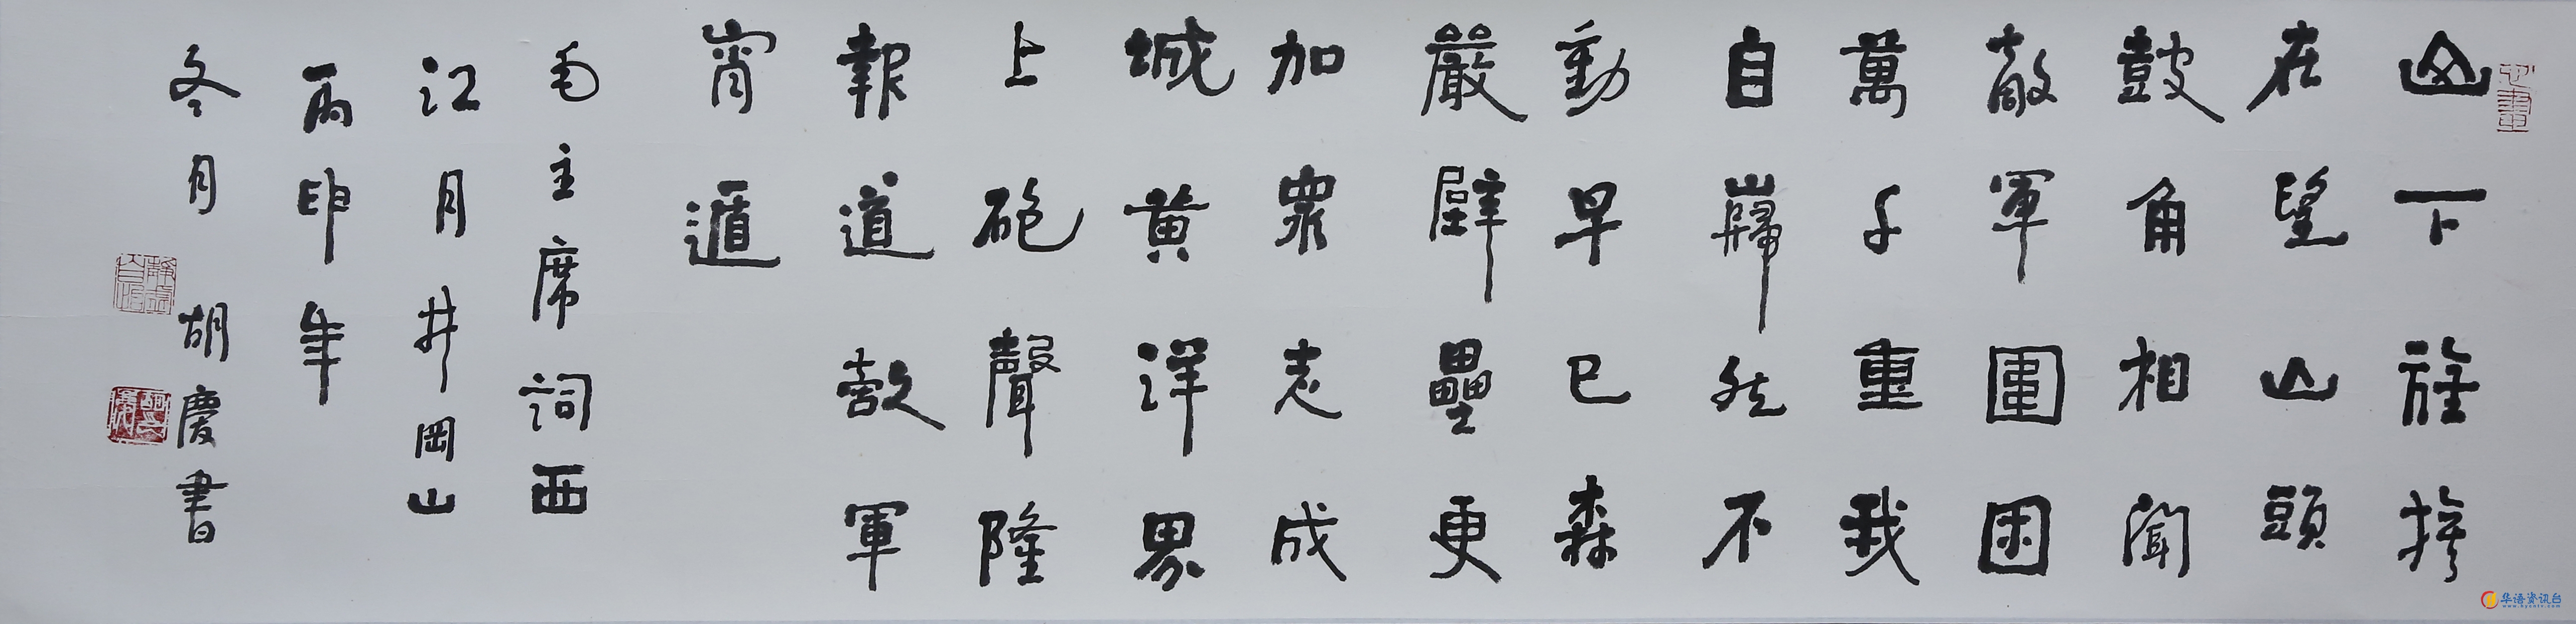 山下旌旗
在望山頭
鼓角相聞
敵軍圍困
萬千重我
自巋然不
動早已森
嚴壁壘更
加眾志成
城黃洋界
上砲聲隆
報道敵軍
宵遁
毛主席詞西
江月井岡山
丙申年
冬月 胡慶書
华语资讯台